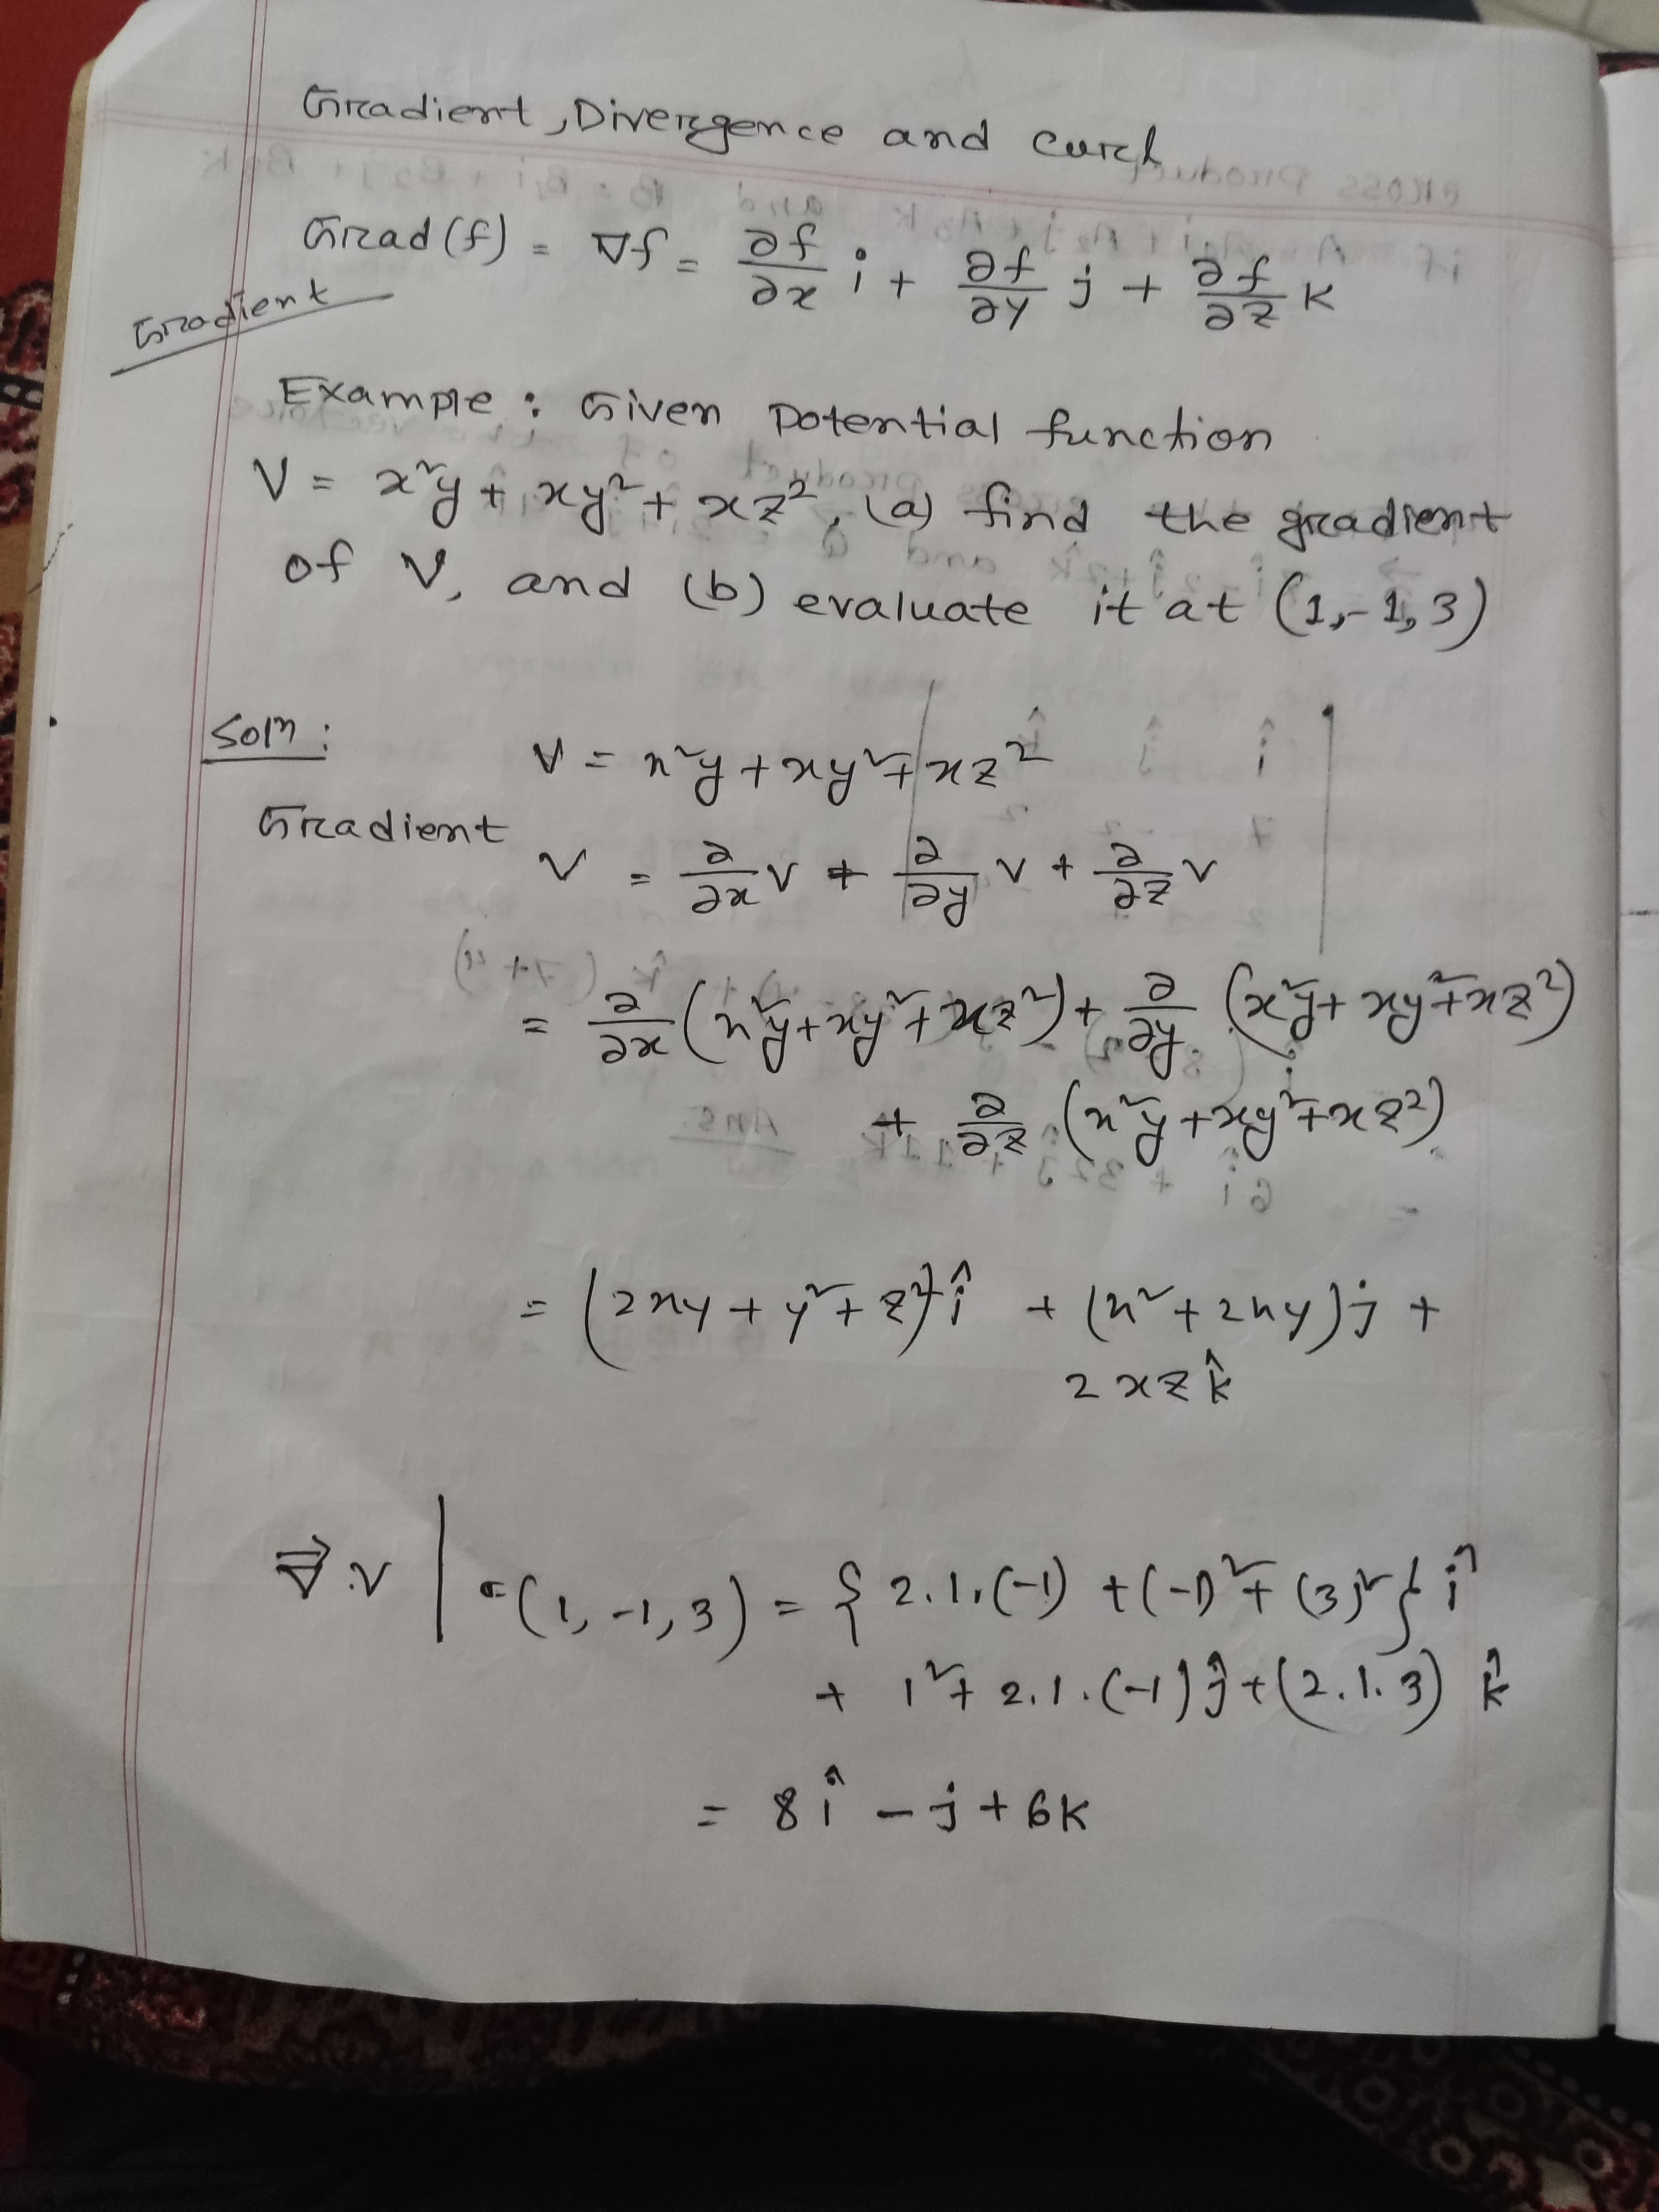 Gradient, Divergence and Curl
Grad (f) = ∇f = ∂f/∂x i + ∂f/∂y j + ∂f/∂z k
Gradient
Example : Given Potential function
V = x²y + xy² + xz², (a) find the gradient
of V, and (b) evaluate it at (1,-1,3)
Soln :
V = x²y + xy² + xz²
Gradient
V = ∂/∂x V + ∂/∂y V + ∂/∂z V
= ∂/∂x (x²y + xy² + xz²) + ∂/∂y (x²y + xy² + xz²)
+ ∂/∂z (x²y + xy² + xz²)
= (2xy + y² + z²) î + (x² + 2xy) j +
2xz k̂
∇⃗.V | =(1, -1, 3) = { 2.1.(-1) + (-1)² + (3)² } î
+ 1² + 2.1.(-1) ĵ + (2.1.3) k̂
= 8 î - j + 6k